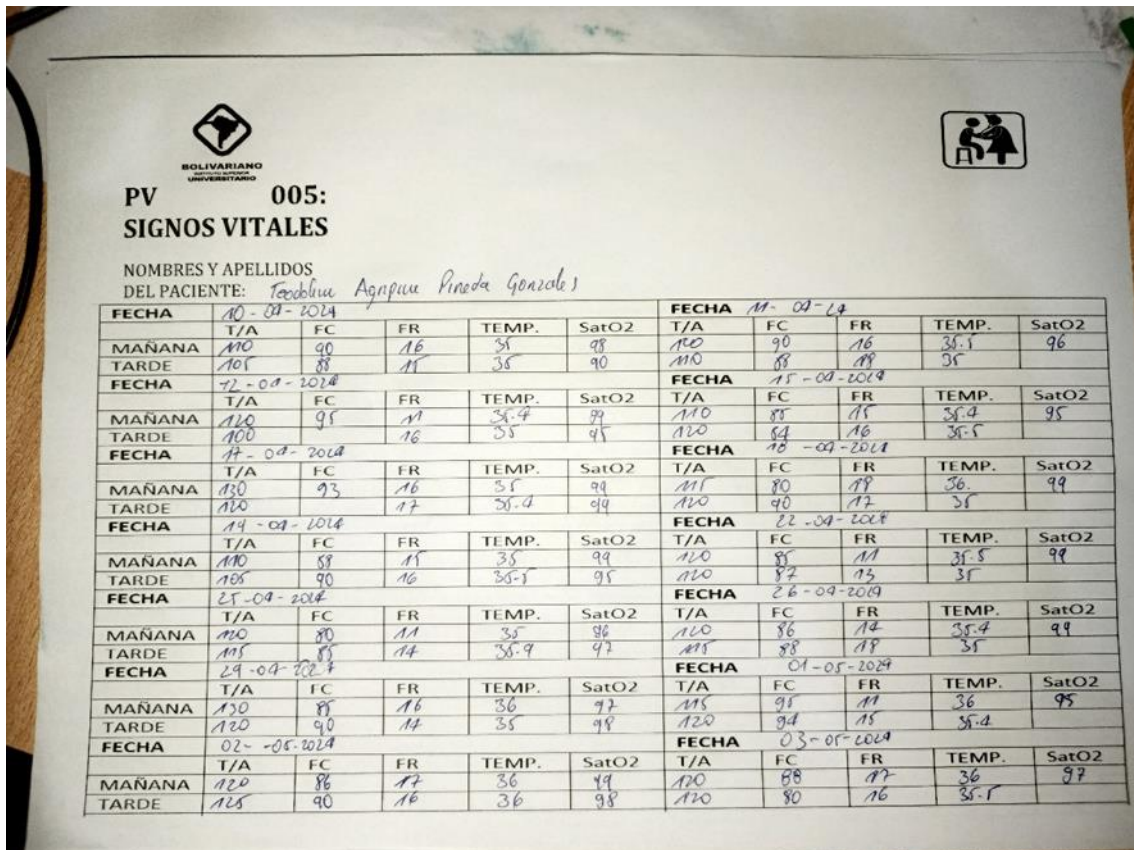 BOLIVARIANO
INSTITUTO SUPERIOR
UNIVERSITARIO
PV 005:
SIGNOS VITALES
NOMBRES Y APELLIDOS
DEL PACIENTE: Pineda Gonzales
FECHA 10-04-2024 FECHA 11-04-24
T/A FC FR TEMP. SatO2 T/A FC FR TEMP. SatO2
MAÑANA 110 90 16 35 98 120 90 16 35.5 96
TARDE 105 88 15 35 90 110 88 18 35
FECHA 12-04-2024 FECHA 15-04-2024
T/A FC FR TEMP. SatO2 T/A FC FR TEMP. SatO2
MAÑANA 120 95 11 35.4 99 110 85 15 35.4 95
TARDE 100 16 35 95 120 84 16 35.5
FECHA 17-04-2024 FECHA 18-04-2024
T/A FC FR TEMP. SatO2 T/A FC FR TEMP. SatO2
MAÑANA 130 93 16 35 99 115 80 18 36. 99
TARDE 120 17 35.4 99 120 90 17 35
FECHA 19-04-2024 FECHA 22-04-2024
T/A FC FR TEMP. SatO2 T/A FC FR TEMP. SatO2
MAÑANA 110 88 15 35 99 120 85 11 35.5 99
TARDE 105 90 16 35.5 95 120 87 13 35
FECHA 25-04-2024 FECHA 26-04-2024
T/A FC FR TEMP. SatO2 T/A FC FR TEMP. SatO2
MAÑANA 120 80 11 35 96 120 86 14 35.4 99
TARDE 115 85 14 35.9 97 115 88 18 35
FECHA 29-04- FECHA 01-05-2024
T/A FC FR TEMP. SatO2 T/A FC FR TEMP. SatO2
MAÑANA 130 85 16 36 97 115 95 11 36 95
TARDE 120 90 14 35 98 120 94 15 35.4
FECHA 02- -05-2024 FECHA 03-05-2024
T/A FC FR TEMP. SatO2 T/A FC FR TEMP. SatO2
MAÑANA 120 86 17 36 99 120 88 17 36 97
TARDE 125 90 16 36 98 120 80 16 35.5